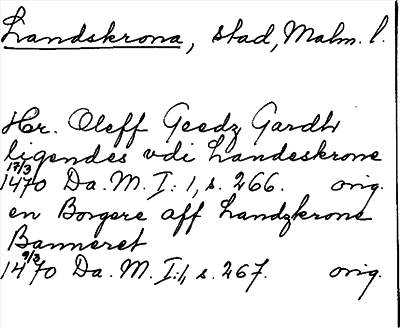 Landskrona, stad, Malm. l.
Hr. Oleff Geedz Gardh
ligendes vdi Landeskrone
17/3
1470 Da. M. I: 1, s. 266. orig.
en Borgere aff Landzkrone
Banneret
9/3
1470 Da. M. I:1, s. 267. orig.